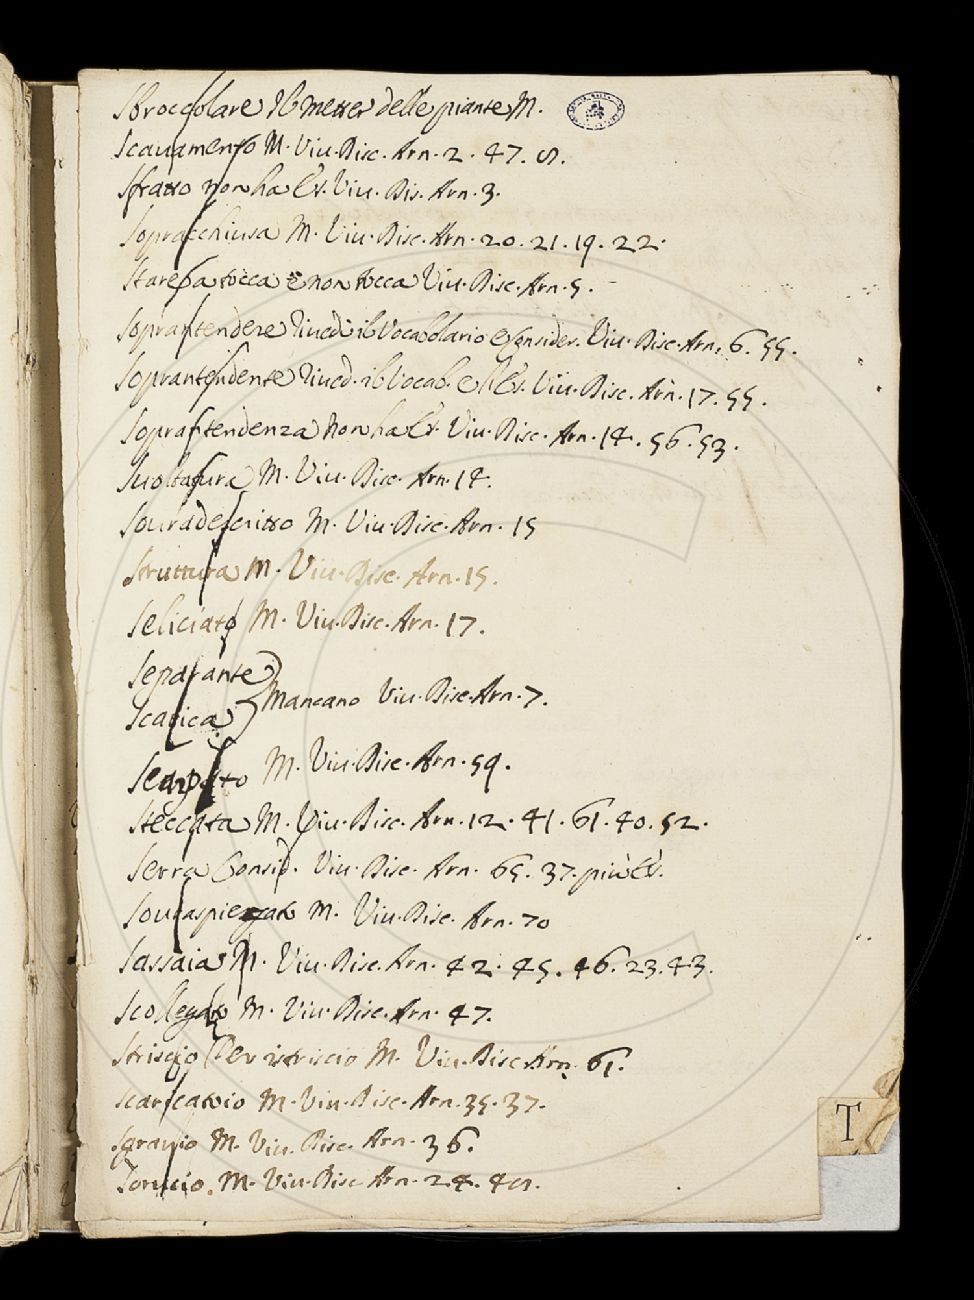 Sbroccolare Il metter delle piante M.
Scavamento M. Viu. Disc. Arn. 2. 47. 5.
Sfratto non ha Es. Viu. Dis. Arn. 3.
Sopracchiusa M. Viu. Disc. Arn. 20. 21. 19. 22.
Stare fa tocca e non tocca Viu. Disc. Arn. 5.
Soprantendere Riuedi il Vocabolario e Consider. Viu. Disc. Arn. 6. 55.
Soprantendente Riued. il Vocab. e Es. Viu. Disc. Arn. 17. 55.
Soprantendenza Non ha Es. Viu. Disc. Arn. 14. 56. 53.
Suoltatura M. Viu. Disc. Arn. 14.
Souradescritto M. Viu. Disc. Arn. 15
Struttura M. Viu. Disc. Arn. 15.
Seliciato M. Viu. Disc. Arn. 17.
Separante
Scarica Mancano Viu. Disc. Arn. 7.
M. Viu. Disc. Arn. 59.
Steccata M. Viu. Disc. Arn. 12. 41. 61. 40. 52.
Serra Consid. Viu. Disc. Arn. 65. 37. più Es.
M. Viu. Disc. Arn. 70
Sassaia M. Viu. Disc. Arn. 42. 45. 46. 23. 43.
Scollegato M. Viu. Disc. Arn. 47.
Striscio Per istriscio M. Viu. Disc. Arn. 61.
Scaricatoio M. Viu. Disc. Arn. 35. 37.
M. Viu. Disc. Arn. 36.
M. Viu. Disc. Arn. 24. 45.
T